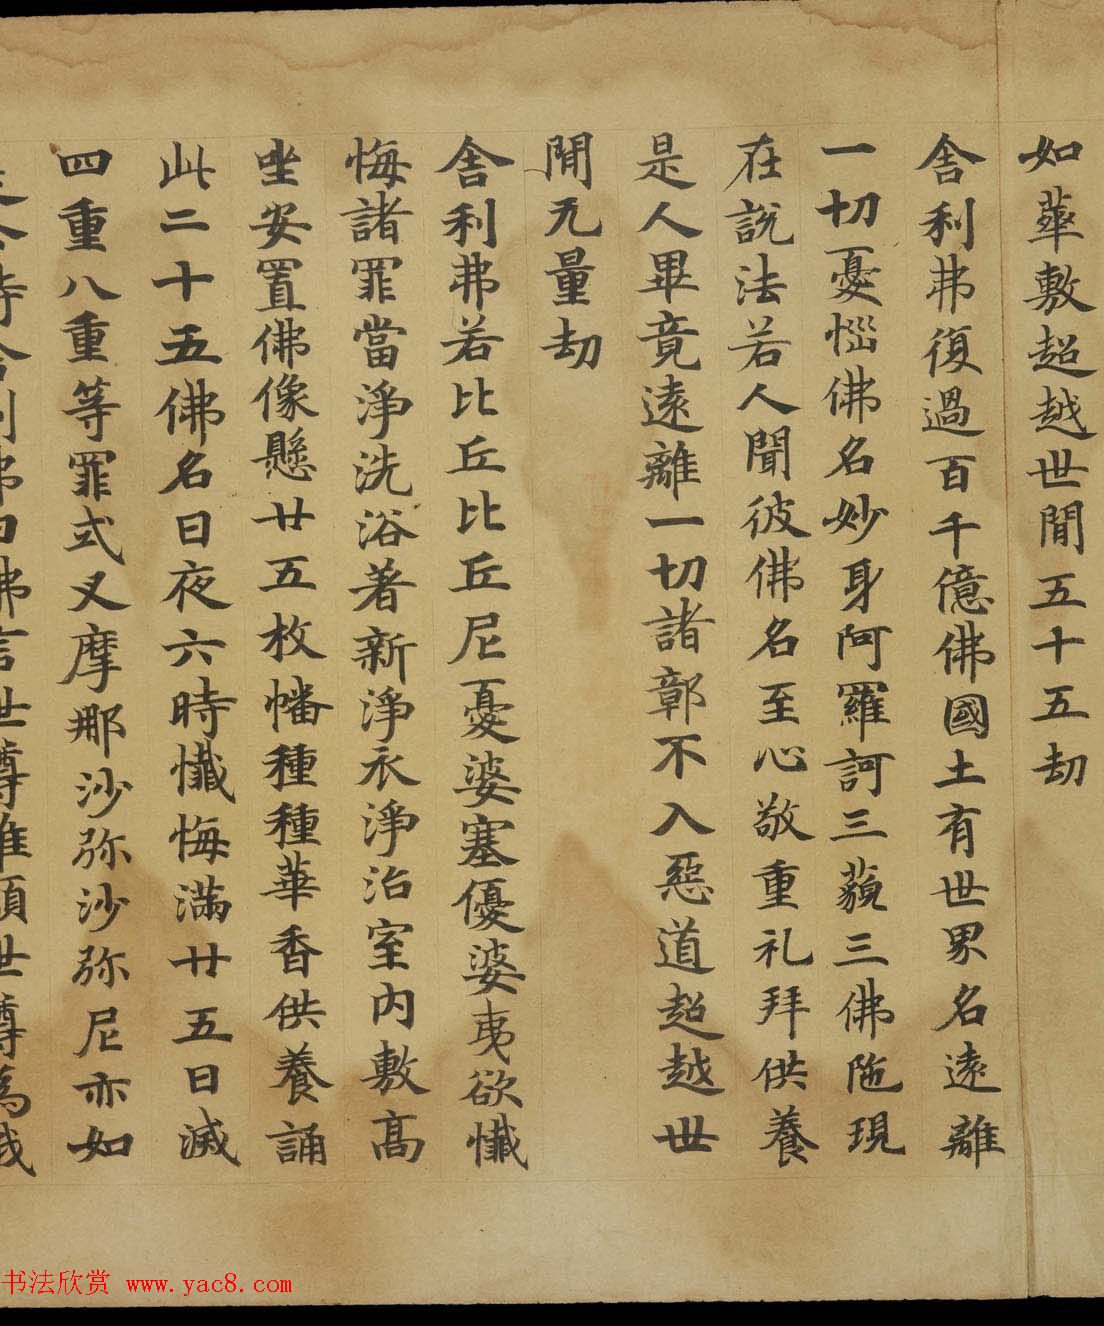 如華敷超越世間五十五劫
舍利弗復過百千億佛國土有世界名遠離
一切憂惱佛名妙身阿羅訶三藐三佛陁現
在說法若人聞彼佛名至心敬重礼拜供養
是人畢竟遠離一切諸鄣不入惡道超越世
間无量劫
舍利弗若比丘比丘尼憂婆塞優婆夷欲懺
悔諸罪當淨洗浴著新淨衣淨治室內敷高
坐安置佛像懸廿五枚幡種種華香供養誦
此二十五佛名日夜六時懺悔滿廿五日滅
四重八重等罪式叉摩那沙弥沙弥尼亦如
舍利弗白佛言世尊唯願世尊為我
书法欣赏 www.yac8.com